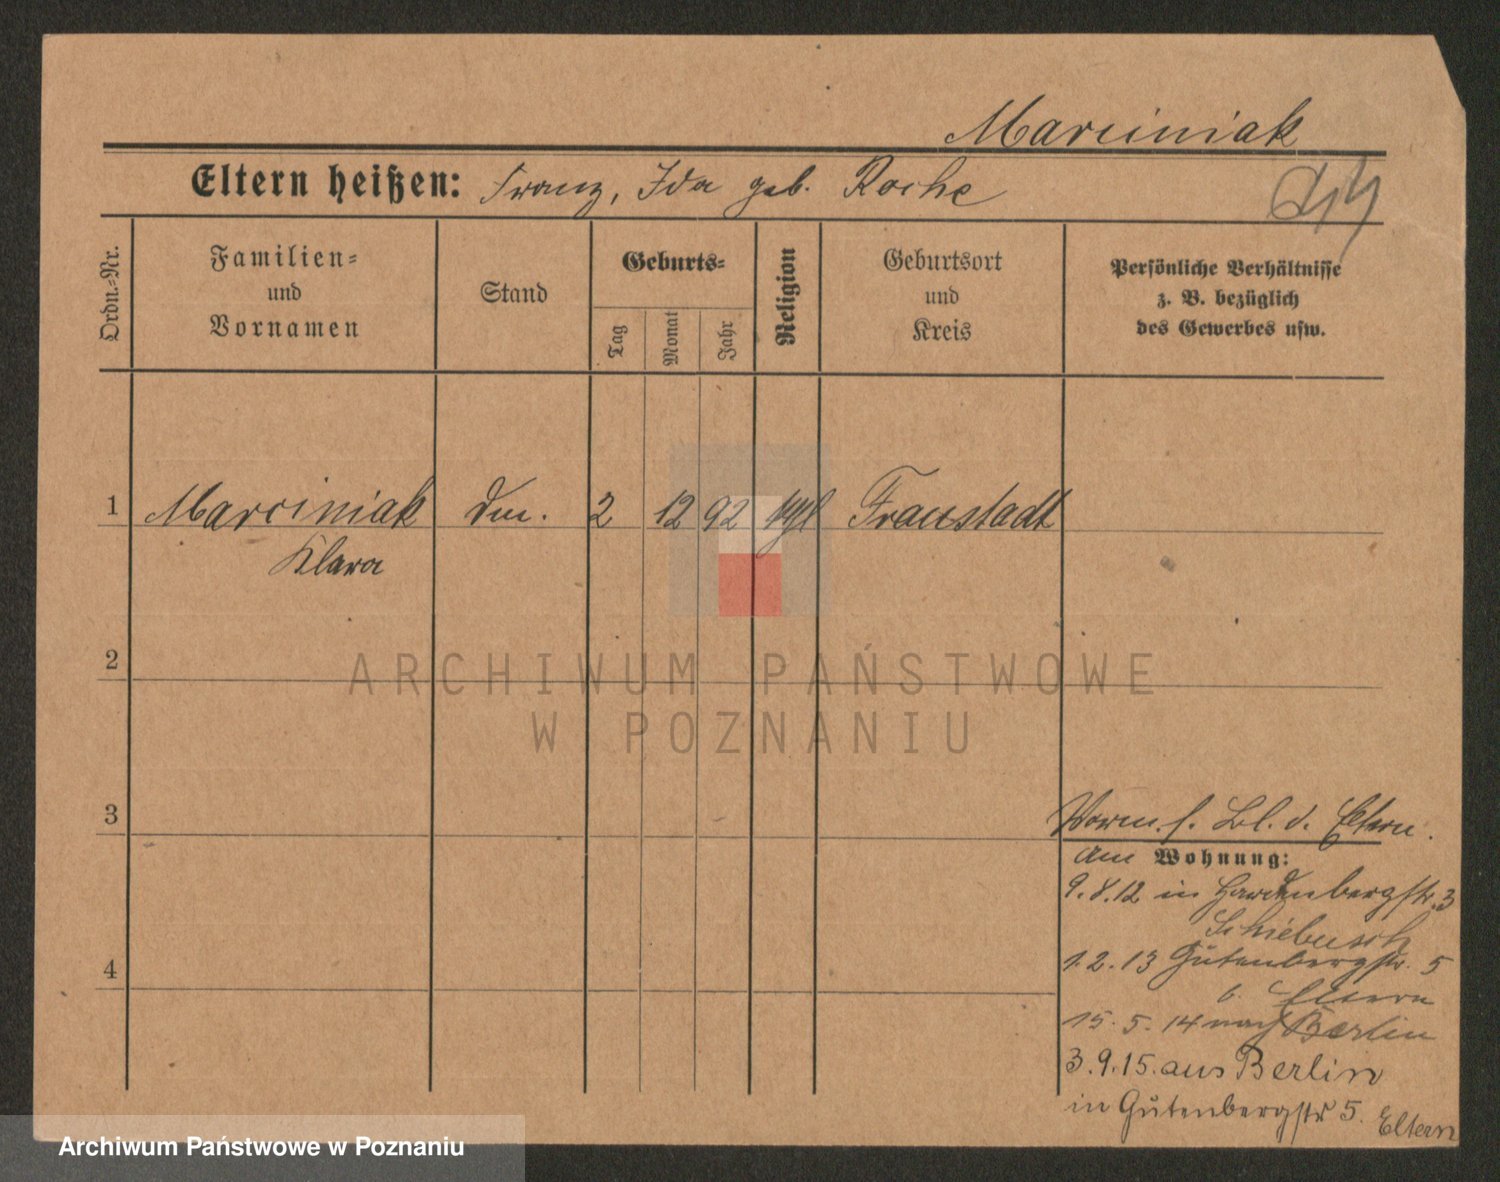 Marciniak
Eltern heißen: Franz, Ida geb. Roche
Ordn.-Nr.
Familien-
und
Vornamen
Stand
Geburts-
Tag
Monat
Jahr
Religion
Geburtsort
und
Kreis
Persönliche Verhältnisse
z. B. bezüglich
des Gewerbes usw.
1 Marciniak 2 12 92 Fraustadt
Klara
2
ARCHIWUM PAŃSTWOWE
W POZNANIU
3
Vorm. s. Bl. d. Eltern.
am Wohnung:
9.8.12 in Hardenbergstr. 3
Schiebusch
1.2.13 Gutenbergstr. 5
4
b. Eltern
15.5.14 nach Berlin
3.9.15. aus Berlin
in Gutenbergstr 5. Eltern
Archiwum Państwowe w Poznaniu